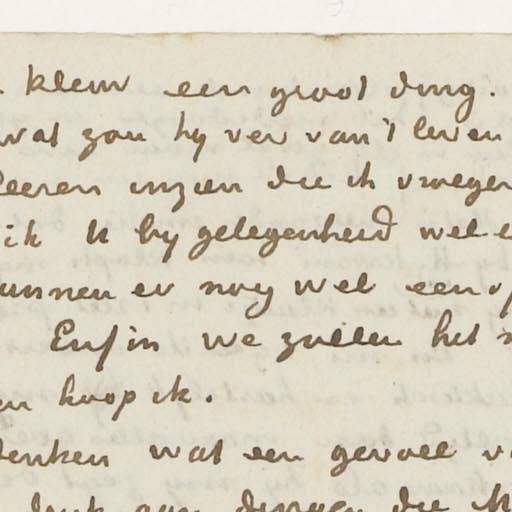 kleur een groot ding.
wat zou hy ver van 't leven
leeren inzien die ik vroeger
ik U by gelegenheid wel e
kunnen er nog wel eens
Enfin we zullen het
hoop ik.
denken wat een gevoel v
denk aan dingen die